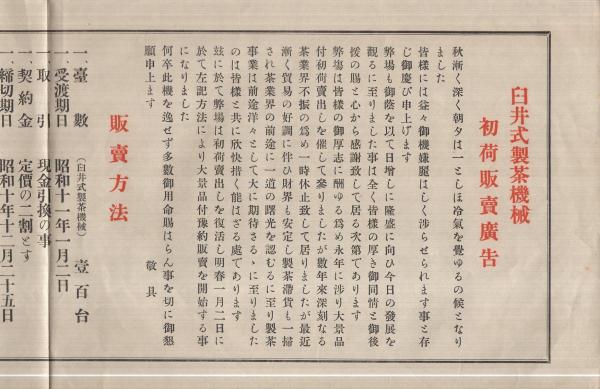 臼井式製茶機械
初荷販賣廣告
秋漸く深く朝夕は一としほ冷氣を覺ゆるの候となり
ました
皆樣には益々御機嫌麗はしく渉らせられます事と存
じ御慶び申上げます
弊場も御蔭を以て日增しに隆盛に向ひ今日の發展を
觀るに至りました事は全く皆樣の厚き御同情と御後
援の賜と心から感謝致して居る次第であります
弊場は皆樣の御厚志に酬ゆる爲め永年に渉り大景品
付初荷賣出しを催して參りましたが數年來深刻なる
茶業界不振の爲め一時休止致して居りましたが最近
漸く貿易の好調に伴ひ財界も安定し製茶滯貨も一掃
され茶業界の前途に一道の曙光を認むるに至り製茶
事業は前途洋々として大に期待さるゝに至りました
のは皆樣と共に欣快措く能はざる處であります
玆に於て弊場は初荷賣出しを復活し明春一月二日に
於て左記方法により大景品付豫約販賣を開始する事
になりました
何卒此機を逸せず多數御用命賜はらん事を切に御懇
願申上ます
敬具
販賣方法
一、臺數(臼井式製茶機械)壹百台
一、受渡期日 昭和十一年一月二日
一、取引 現金引換の事
一、契約金 定價の二割とす
一、締切期日 昭和十年十二月二十五日